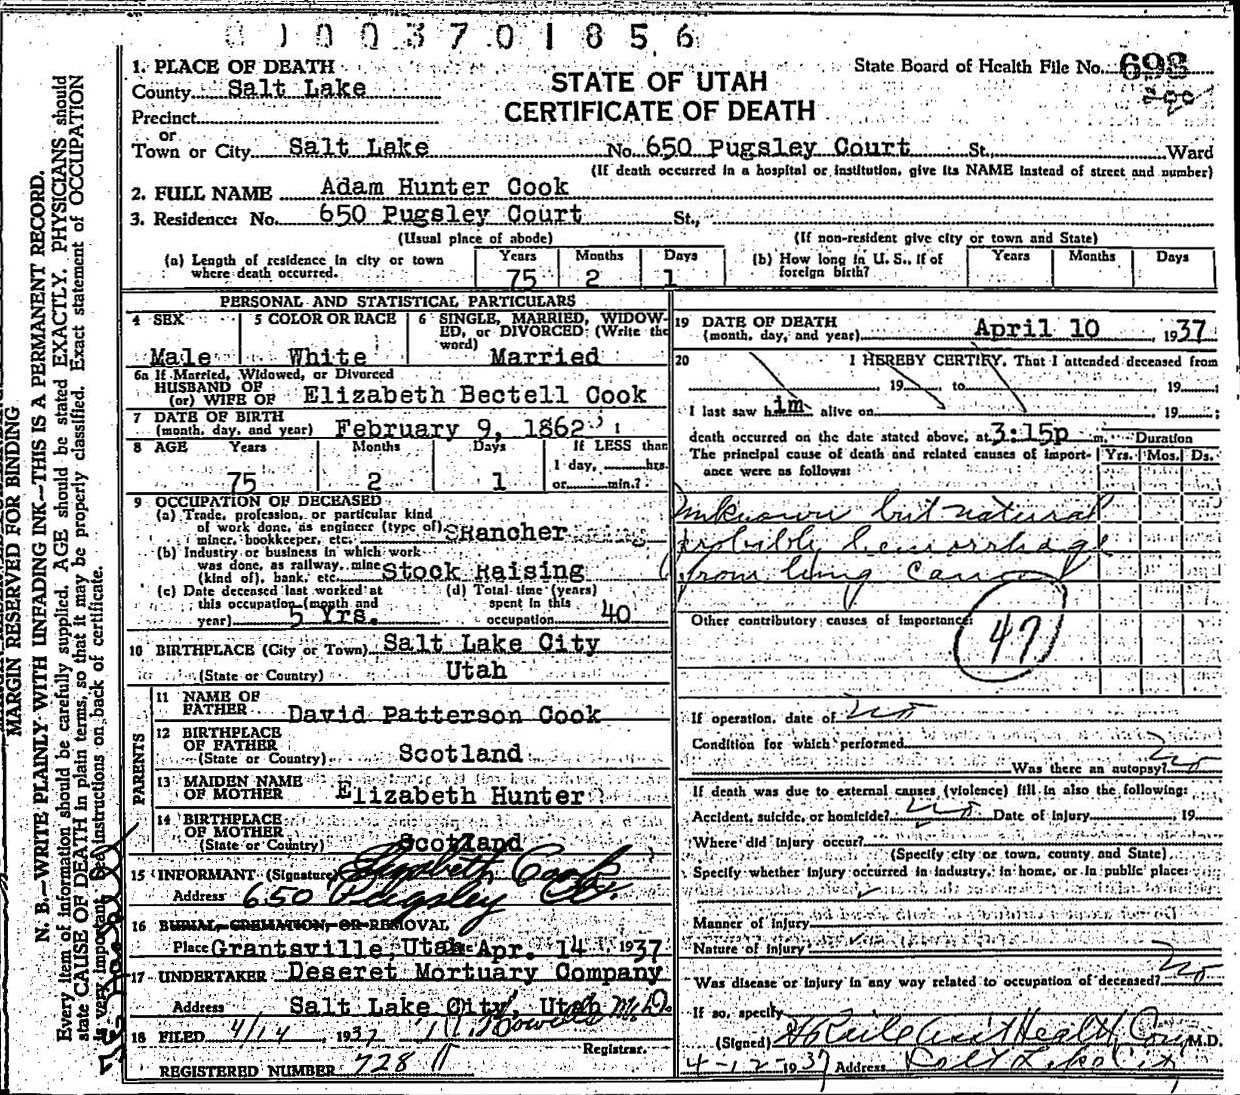 0 0 0 3 7 0 1 8 5 6
STATE OF UTAH
CERTIFICATE OF DEATH
State Board of Health File No. 698
1. PLACE OF DEATH
County Salt Lake
Precinct
or
Town or City Salt Lake No. 650 Pugsley Court St. Ward
(If death occurred in a hospital or institution, give its NAME instead of street and number)
2. FULL NAME Adam Hunter Cook
3. Residence: No. 650 Pugsley Court St.,
(Usual place of abode) (If non-resident give city or town and State)
(a) Length of residence in city or town where death occurred. Years 75 Months 2 Days 1
(b) How long in U. S., if of foreign birth? Years Months Days
PERSONAL AND STATISTICAL PARTICULARS
4 SEX Male
5 COLOR OR RACE White
6 SINGLE, MARRIED, WIDOWED, or DIVORCED: (Write the word) Married
6a If Married, Widowed, or Divorced
HUSBAND OF
(or) WIFE OF Elizabeth Bectell Cook
7 DATE OF BIRTH
(month, day, and year) February 9, 1862
8 AGE Years 75 Months 2 Days 1 If LESS than 1 day, hrs. or min.?
9 OCCUPATION OF DECEASED
(a) Trade, profession, or particular kind of work done, as engineer (type of) miner, bookkeeper, etc. Rancher
(b) Industry or business in which work was done, as railway, mine (kind of), bank, etc. Stock Raising
(c) Date deceased last worked at this occupation (month and year) 5 Yrs.
(d) Total time (years) spent in this occupation 40
10 BIRTHPLACE (City or Town) Salt Lake City
(State or Country) Utah
PARENTS
11 NAME OF FATHER David Patterson Cook
12 BIRTHPLACE OF FATHER (State or Country) Scotland
13 MAIDEN NAME OF MOTHER Elizabeth Hunter
14 BIRTHPLACE OF MOTHER (State or Country) Scotland
15 INFORMANT (Signature) Elizabeth Cook
Address 650 Pugsley Ct.
16 BURIAL, CREMATION, OR REMOVAL
Place Grantsville, Utah Apr. 14 1937
17 UNDERTAKER Deseret Mortuary Company
Address Salt Lake City, Utah
18 FILED 4/14 1937 M.D.
Registrar.
REGISTERED NUMBER 728
19 DATE OF DEATH
(month, day, and year) April 10 1937
20 I HEREBY CERTIFY, That I attended deceased from
19 to 19 ;
I last saw him alive on 19 ;
death occurred on the date stated above, at 3:15p m. Duration
The principal cause of death and related causes of importance were as follows: Yrs. Mos. Ds.
Unknown but natural
probible hemorrhage
from lung cancer
Other contributory causes of importance:
47
If operation, date of no
Condition for which performed
Was there an autopsy? no
If death was due to external causes (violence) fill in also the following:
Accident, suicide, or homicide? no Date of injury , 19
Where did injury occur?
(Specify city or town, county and State)
Specify whether injury occurred in industry, in home, or in public place:
Manner of injury
Nature of injury
Was disease or injury in any way related to occupation of deceased? no
If so, specify
(Signed) M.D.
4-12-1937 Address Salt Lake City
MARGIN RESERVED FOR BINDING
N. B.—WRITE PLAINLY WITH UNFADING INK—THIS IS A PERMANENT RECORD.
Every item of information should be carefully supplied. AGE should be stated EXACTLY. PHYSICIANS should
state CAUSE OF DEATH in plain terms, so that it may be properly classified. Exact statement of OCCUPATION
is very important. See instructions on back of certificate.